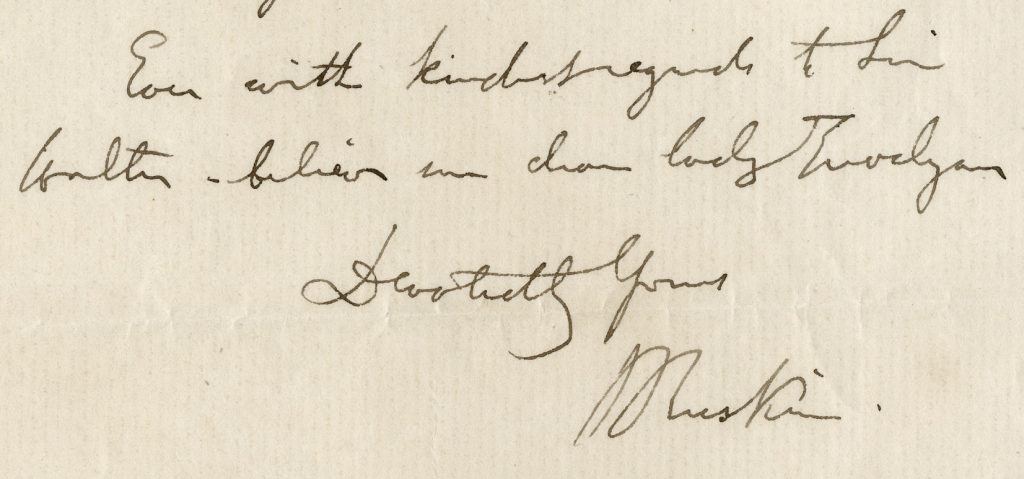 Ever with kindest regards to Sir
Walter - believe me dear Lady Trevelyan
Devotedly Yours
J Ruskin.